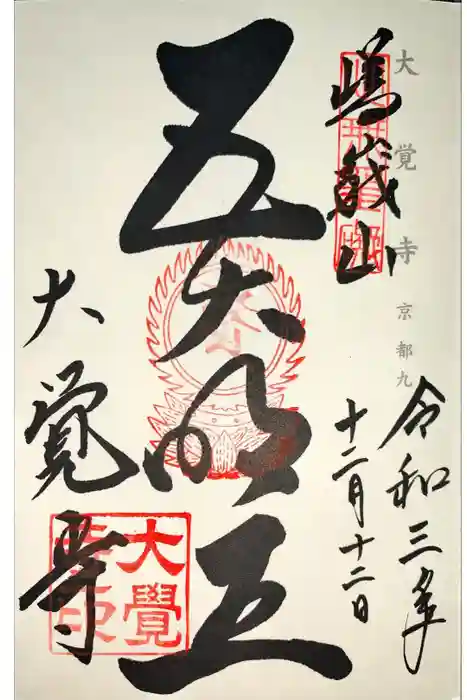 大覚寺 京都九
嵯峨山
令和三年
十二月十二日
五大明王
大覚寺
大覺